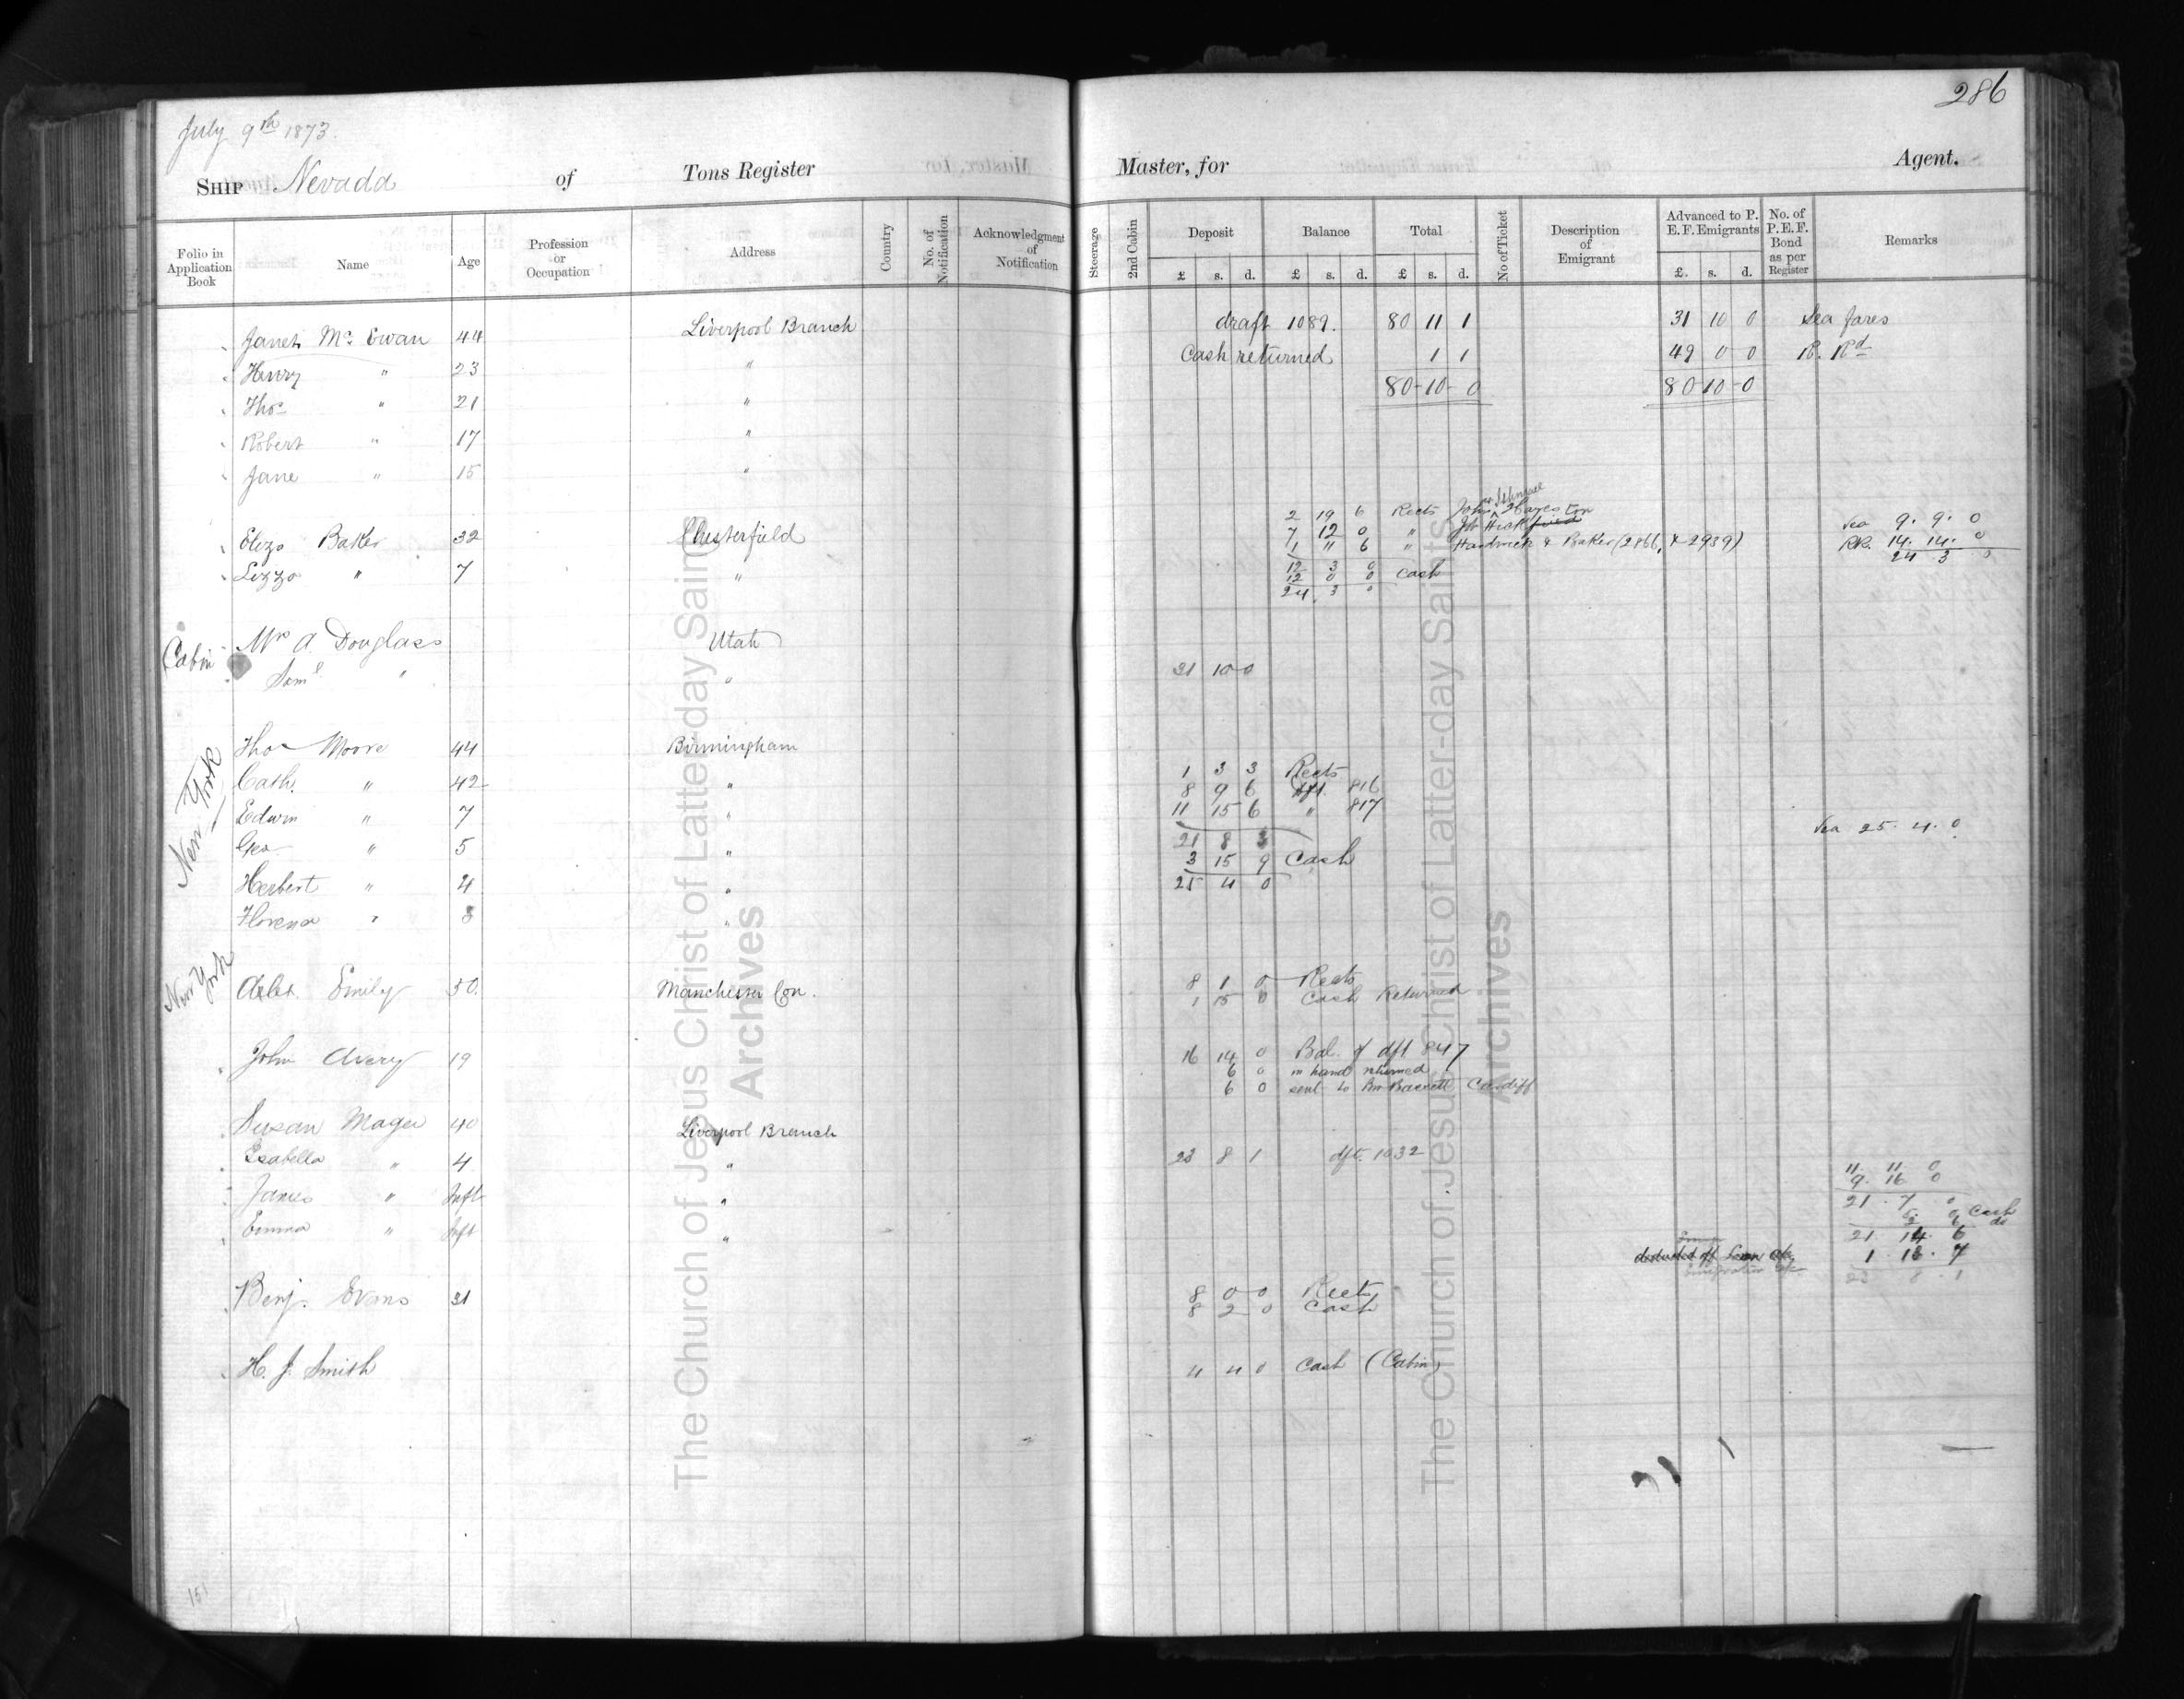 286
July 9th 1873.
SHIP Nevada of Tons Register Master, for Agent.
Folio in Application Book Name Age Profession or Occupation Address Country No. of Notification Acknowledgment of Notification Steerage 2nd Cabin Deposit Balance Total No of Ticket Description of Emigrant Advanced to P. E. F. Emigrants No. of P.E.F. Bond as per Register Remarks
£ s. d. £ s. d. £ s. d. £. s. d.
Janet Mc Ewan 44 Liverpool Branch draft 1089. 80 11 1 31 10 0 Sea fares
Henry " 23 " Cash returned 1 1 49 0 0 R. Rd
Thos " 21 " 80-10-0 80 10-0
Robert " 17 "
Jane " 15 "
2 19 6 Rects John Hares
7 12 0 " Sea 9. 9. 0
Eliza Baker 32 Chesterfield 1 11 6 " Hardwick & Baker (2866, & 2939) RR. 14. 14. 0
24 3 0
Lizza " 7 " 12 3 0
12 0 0 Cash
24. 3 0
Cabin Mrs A. Douglass Utah
Saml " " 21 10 0
New York
Thos Moore 44 Birmingham
Cath. " 42 " 1 3 3 Rects
8 9 6 dft. 816
Edwin " 7 " 11 15 6 " 817
Geo " 5 " 21 8 3 Sea 25. 4. 0
3 15 9 Cash
Herbert " 4 " 25 4 0
Florence " 8 "
New York
Emily 50. Manchester Con. 8 1 0 Rects
1 15 0 Cash Returned
John Avery 19 16 14 0 Bal. of dft 847
6 0 in hand returned
6 0 sent to Cardiff
Susan Mager 40 Liverpool Branch
Isabella " 4 " 23 8 1 dft. 1032
11. 11. 0
9. 16 0
James " Inft " 21. 7. 0
Cash
do
Emma " Inft " 21. 14. 6
deducted off 1. 13. 7
23 8. 1
Benj. Evans 31 8 0 0 Rects
8 2 0 Cash
H. J. Smith 4 4 0 Cash (Cabin)
151
The Church of Jesus Christ of Latter-day Saints
Archives
The Church of Jesus Christ of Latter-day Saints
Archives